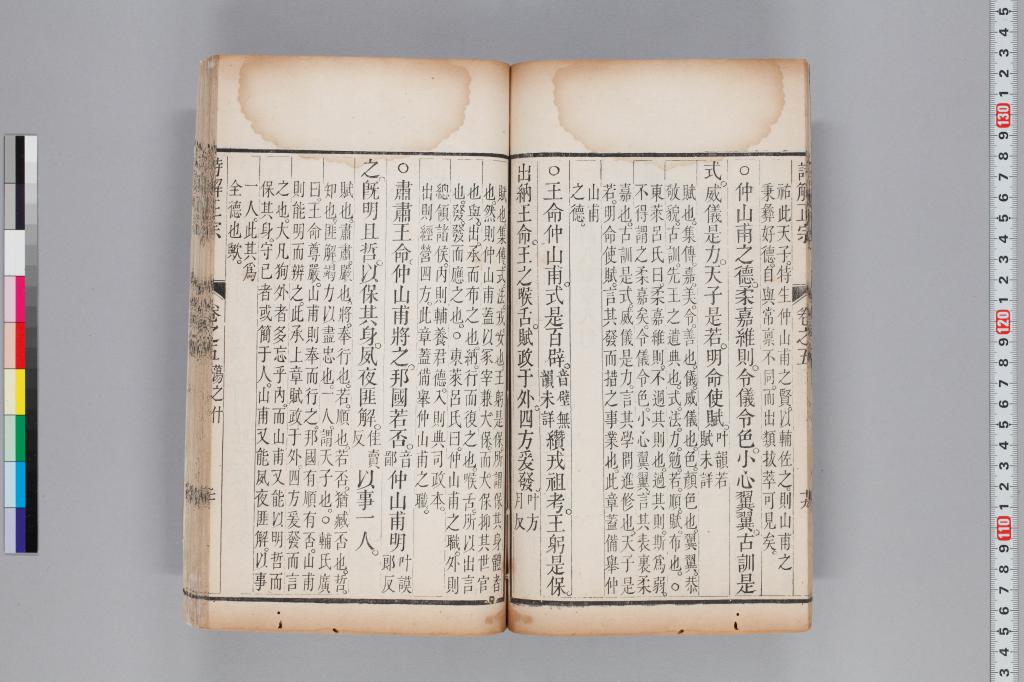 詩解正宗 卷之五
祐此天子。特生仲山甫之賢。以輔佐之。則山甫之
秉彝好德。自與常稟不同。而出類拔萃可見矣。
○仲山甫之德。柔嘉維則。令儀令色。小心翼翼。古訓是
式。威儀是力。天子是若。明命使賦。叶韻若賦未詳
賦也。集傳。嘉美。令善也。儀威儀也。色顏色也。翼翼恭
敬貌。古訓先王之遺典也。式法。力勉。若順。賦布也。○
東萊呂氏曰。柔嘉維則。不過其則也。過其則。斯爲弱。
不得謂之柔嘉矣。令儀令色。小心翼翼。言其表裏柔
嘉也。古訓是式。威儀是力。言其學問進修也。天子是
若。明命使賦。言其發而措之事業也。此章蓋備舉仲
山甫之德。
○王命仲山甫。式是百辟。音璧無韻未詳纘戎祖考。王躬是保。
出納王命。王之喉舌。賦政于外。四方爰發。叶方月反
賦也。集傳。式法。戎女也。王躬是保。所謂保其身體者
也。然則仲山甫蓋以冢宰兼大保。而大保抑其世官
也與。出承而布之也。納行而復之也。喉舌。所以出言
也。發發而應之也。○東萊呂氏曰。仲山甫之職。外則
總領諸侯。內則輔養君德。入則典司政本。
出則經營四方。此章蓋備舉仲山甫之職。
○肅肅王命。仲山甫將之。邦國若否。音鄙仲山甫明叶謨郞反
之。旣明且哲。以保其身。夙夜匪解。佳賣反以事一人。
賦也。肅肅嚴也。將奉行也。若順也。若否。猶臧否也。哲
知也。匪解竭力以盡忠也。一人謂天子也。○輔氏廣
曰。王命尊嚴。山甫則奉而行之。邦國有順有否。山甫
則能明而辨之。此承上章賦政于外四方爰發而言
之也。大凡狥外者多忘乎內。而山甫又能以明哲而
保其身。守已者或簡于人。山甫又能夙夜匪解以事
一人。此其爲
全德也歟。
詩解正宗 卷之五 蕩之什